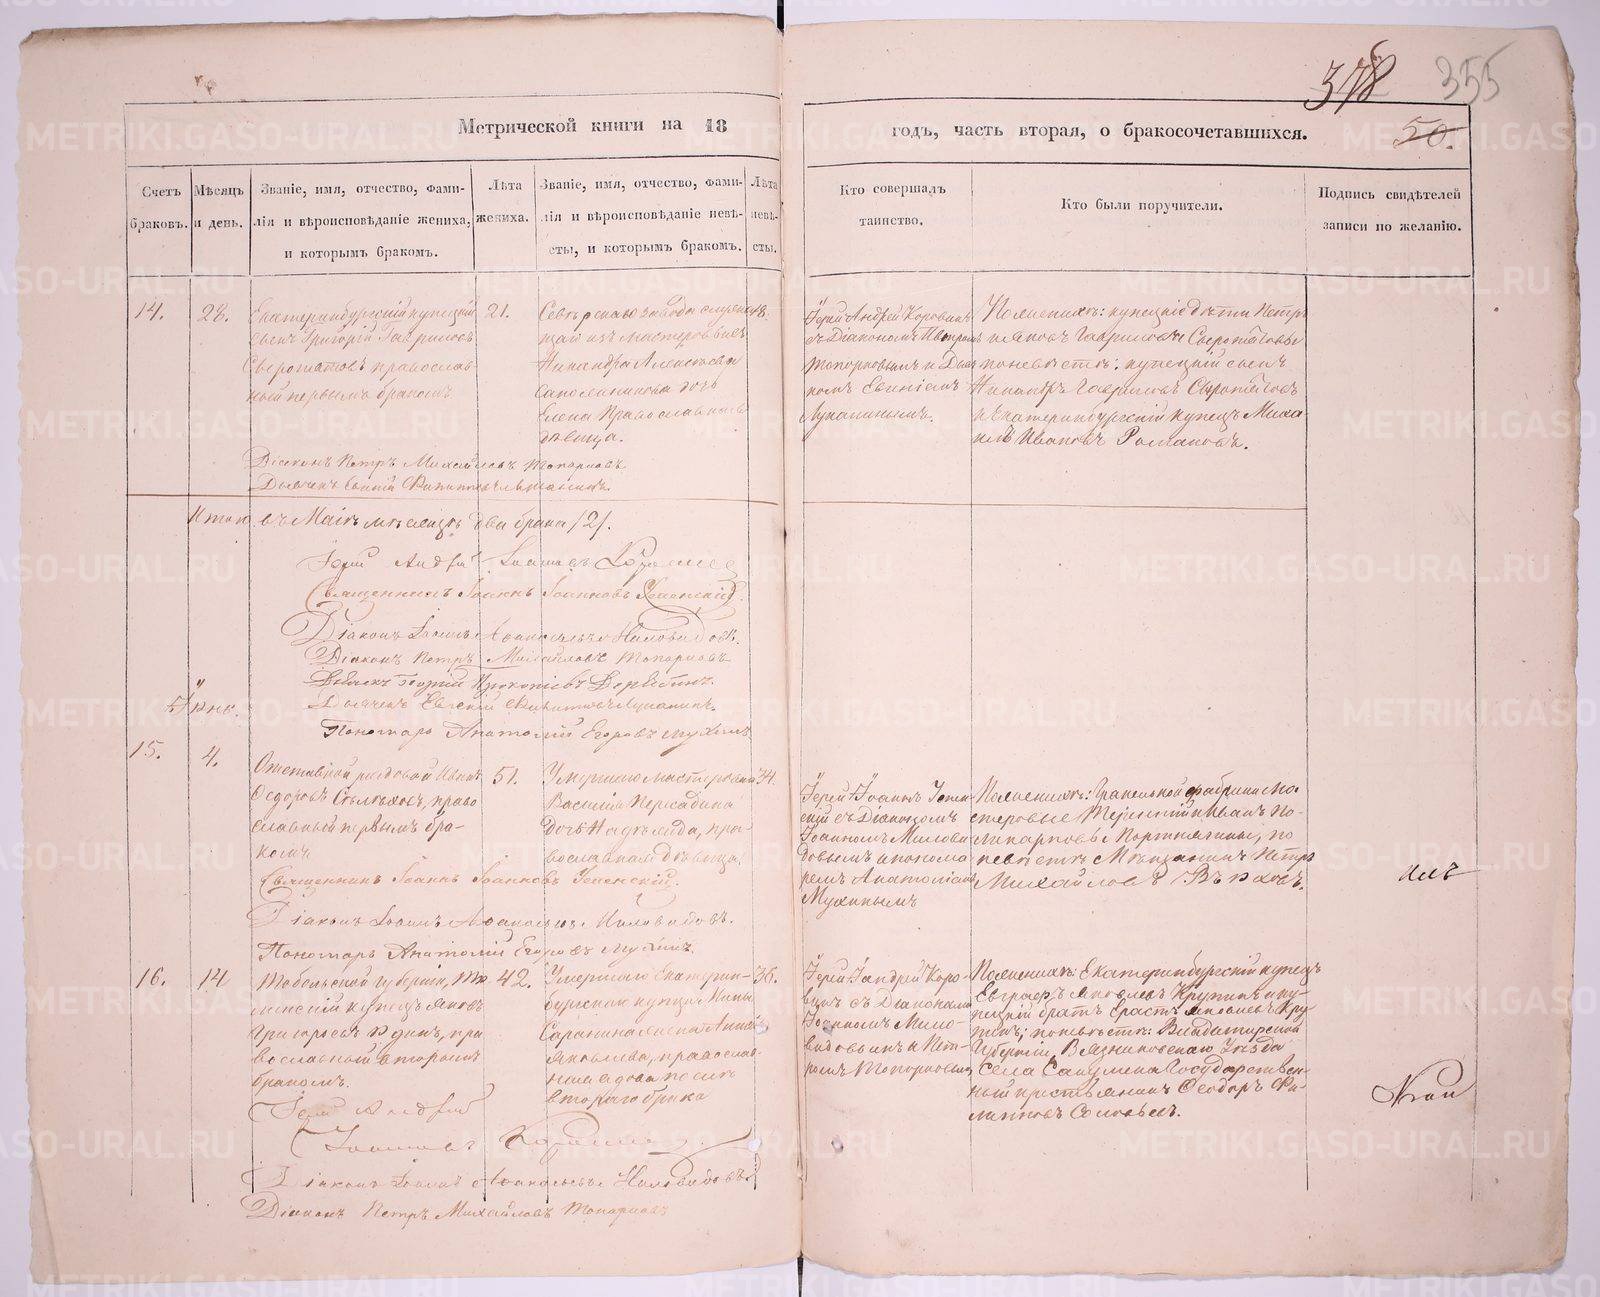 378
355
50.
Метрической книги на 18
годъ, часть вторая, о бракосочетавшихся.
Счетъ браковъ.
Мѣсяцъ и день.
Званіе, имя, отчество, фами-
лія и вѣроисповѣданіе жениха,
и которымъ бракомъ.
Лѣта
жениха.
Званіе, имя, отчество, фами-
лія и вѣроисповѣданіе невѣ-
сты, и которымъ бракомъ.
Лѣта
невѣ-
сты.
Кто совершалъ
таинство.
Кто были поручители.
Подпись свидѣтелей
записи по желанію.
14.
28.
Екатеринбургскій купеческій
сынъ Григорій Гавриловъ
православ-
ный первымъ бракомъ
21.
завода
мастеровыхъ
Никандра Алексѣева
дочь
Елена Православная
дѣвица.
18.
Іерей Андрей Коровинъ
съ Діакономъ Петромъ
Топорковымъ и Дьяч
комъ Евгеніемъ
Лупаннымъ.
По женихѣ: купецкіе дѣти Петръ
и Яковъ Гавриловы
по невѣстѣ: купецкій сынъ
Гавриловъ
и Екатеринбургскій купецъ Миха-
илъ Ивановъ Романовъ.
Діаконъ Петръ Михайловъ Топорковъ
Дьячекъ Евгеній Филипповъ
Итого въ Маѣ мѣсяцѣ два брака /2/.
Іерей Андрей Іоанновъ Коровинъ
Священникъ Іоаннъ Іоанновъ Успенскій.
Діаконъ Іоаннъ Аѳанасьевъ Миловидовъ.
Діаконъ Петръ Михайловъ Топорковъ
Дьячекъ Георгій Прокопіевъ
Дьячекъ Евгеній Филипповъ Лупанинъ.
Пономарь Анатолій Егоровъ Мухинъ
Іюнь.
15.
4.
Отставной рядовой Иванъ
Ѳедоровъ право
славный первымъ бра-
комъ.
51.
Умершаго мастероваго
Василія
дочь Надежда, пра-
вославная дѣвица.
34.
Іерей Іоаннъ Успен-
скій съ Діакономъ
Іоанномъ Милови
довымъ и понома
ремъ Анатоліемъ
Мухинымъ
По женихѣ: Гранильной фабрики Ма-
стеровые и Иванъ По-
ликарповы по
невѣстѣ Мѣщанинъ Петръ
Михайловъ
Священникъ Іоаннъ Іоанновъ Успенскій.
Діаконъ Іоаннъ Аѳанасьевъ Миловидовъ.
Пономарь Анатолій Егоровъ Мухинъ.
16.
14
Тобольской губерніи, Тю
менскій купецъ Яковъ
Григорьевъ пра
вославный вторымъ
бракомъ.
42.
Умершаго Екатерин-
бургскаго купца
Саранина жена Анна
Яковлева, православ-
ная вдова послѣ
втораго брака
36.
Іерей Андрей Коро-
винъ съ Діаконами
Іоанномъ Мило-
видовымъ и Пет-
ромъ Топорковымъ
По женихѣ: Екатеринбургскій купецъ
Евграфъ Яковлевъ и ку-
пецкій братъ Ерастъ Яковлевъ
по невѣстѣ: Владимірской
Губерніи, Вязниковскаго Уѣзда
Села Государствен-
ный крестьянинъ Ѳеодоръ Фи-
липповъ Соловьевъ.
Іерей Андрей
Іоанновъ Коровинъ
Діаконъ Іоаннъ Аѳанасьевъ Миловидовъ
Діаконъ Петръ Михайловъ Топорковъ
METRIKI.GASO-URAL.RU